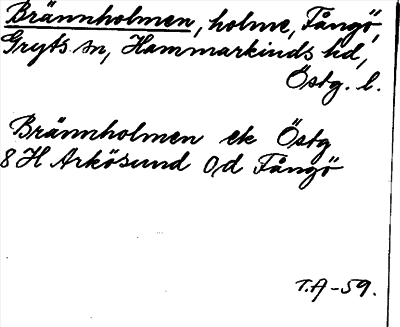 Brännholmen, holme, Fångö,
Gryts sn, Hammarkinds hd,
Östg. l.
Brännholmen ek Östg
8 H Arkösund 0d Fångö
T.A -59.